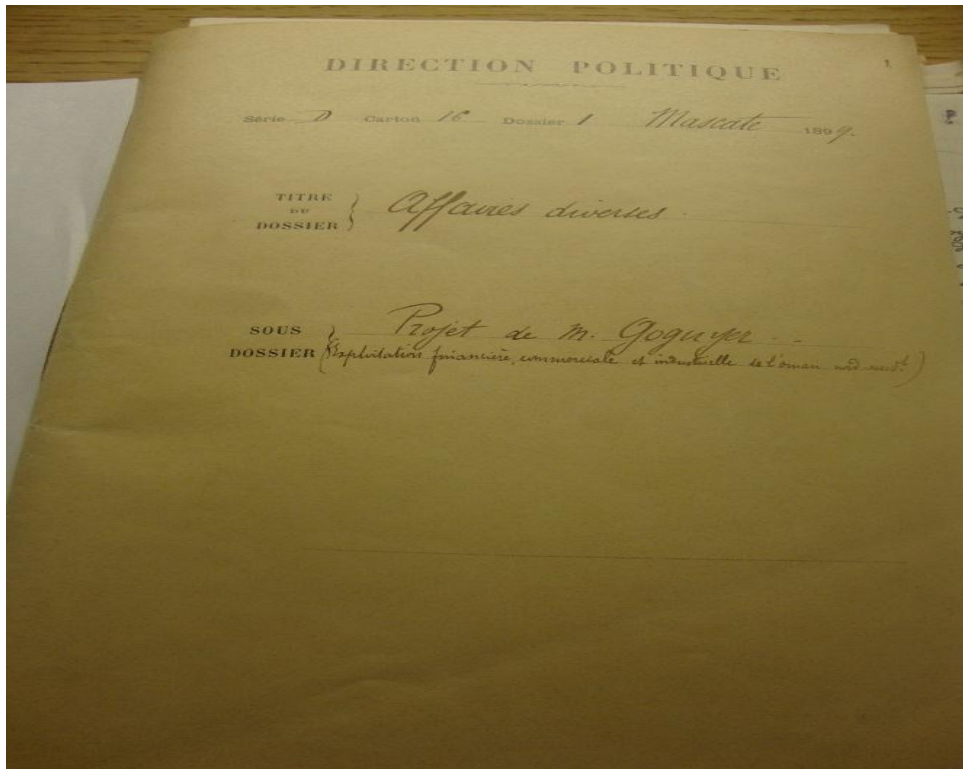 1
DIRECTION POLITIQUE
Série D Carton 16 Dossier 1 Mascate 1899.
TITRE DU DOSSIER } Affaires diverses.
SOUS DOSSIER } Projet de M. Goguyer
(Exploitation financière, commerciale et industrielle de l'oman nord